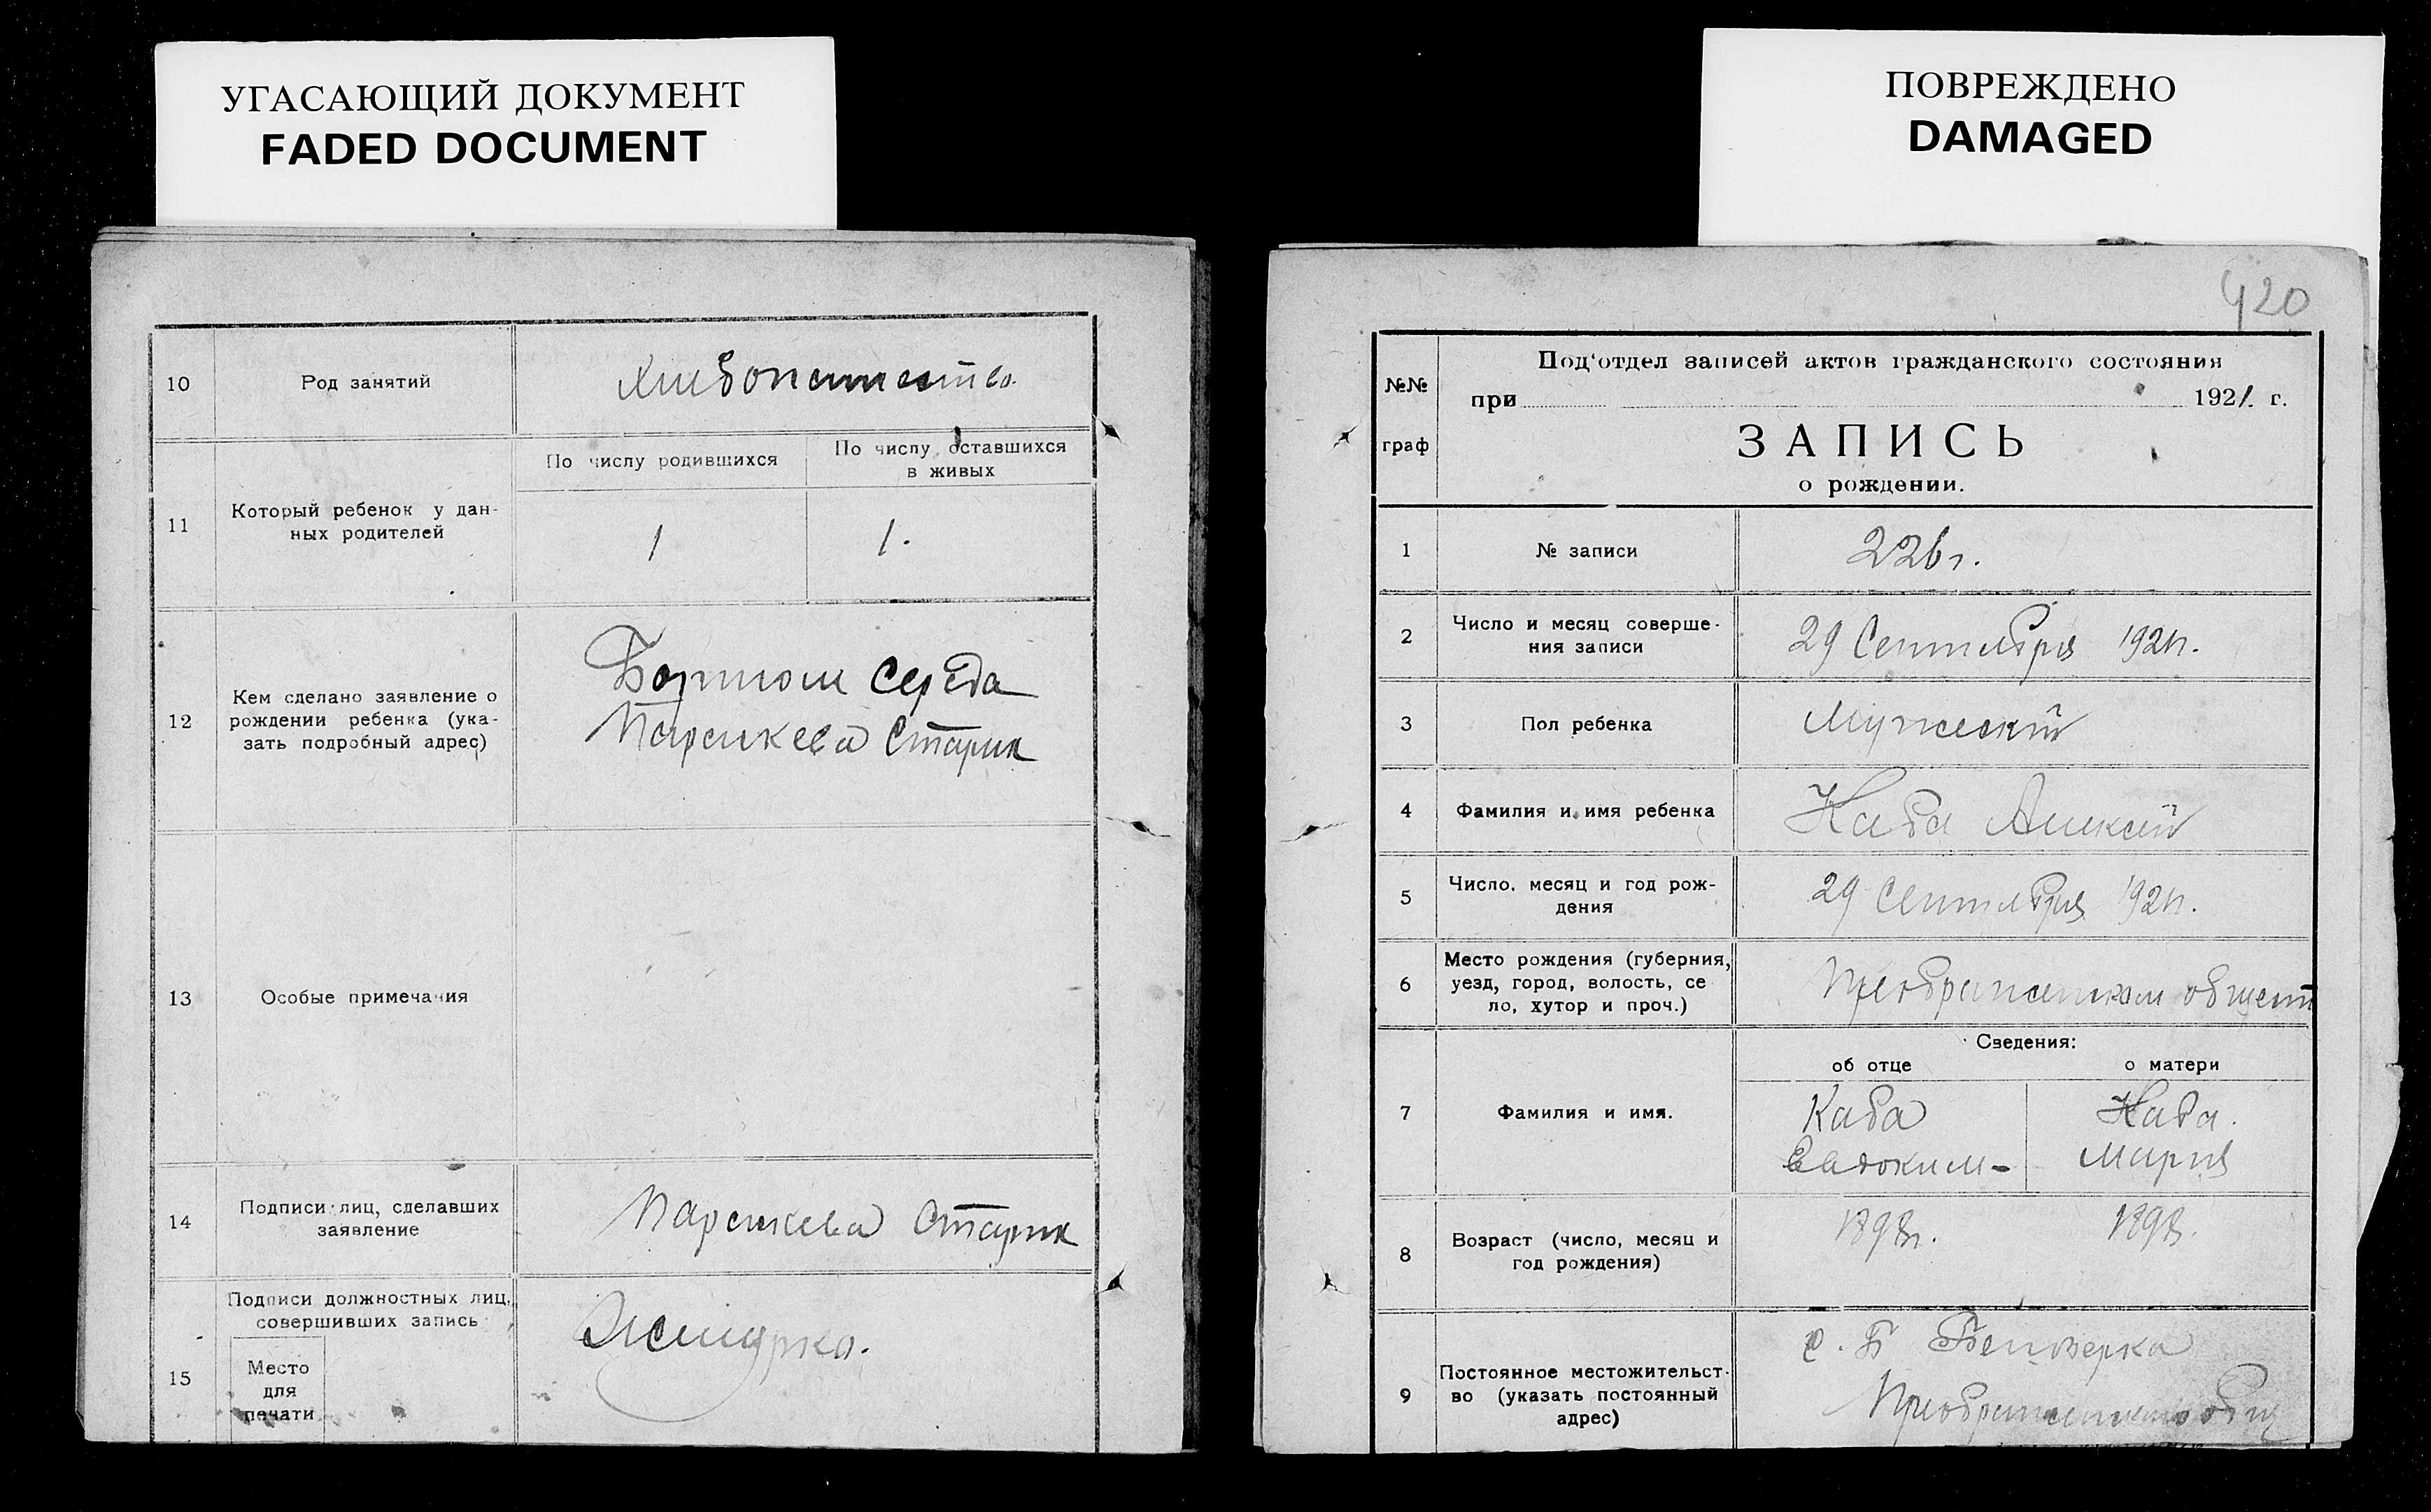 УГАСАЮЩИЙ ДОКУМЕНТ
FADED DOCUMENT
10
Род занятий
11
Который ребенок у дан-
ных родителей
По числу родившихся
По числу оставшихся
в живых
1
1.
12
Кем сделано заявление о
рождении ребенка (ука-
зать подробный адрес)
Середа
Параскева Старик
13
Особые примечания
14
Подписи лиц, сделавших
заявление
Параскева Старик
15
Подписи должностных лиц,
совершивших запись
Место
для
печати
ПОВРЕЖДЕНО
DAMAGED
420
№№
граф
Под'отдел записей актов гражданского состояния
при 1921 г.
ЗАПИСЬ
о рождении.
1
№ записи
226
2
Число и месяц соверше-
ния записи
29 Сентября 1921г.
3
Пол ребенка
Мужеский
4
Фамилия и имя ребенка
Каба Алексей
5
Число, месяц и год рож-
дения
29 Сентября 1921г.
6
Место рождения (губерния,
уезд, город, волость, се
ло, хутор и проч.)
7
Фамилия и имя.
Сведения:
об отце
о матери
Каба
Евдоким
Каба.
Мария
8
Возраст (число, месяц и
год рождения)
9
Постоянное местожительст-
во (указать постоянный
адрес)
с. Б Белозерка